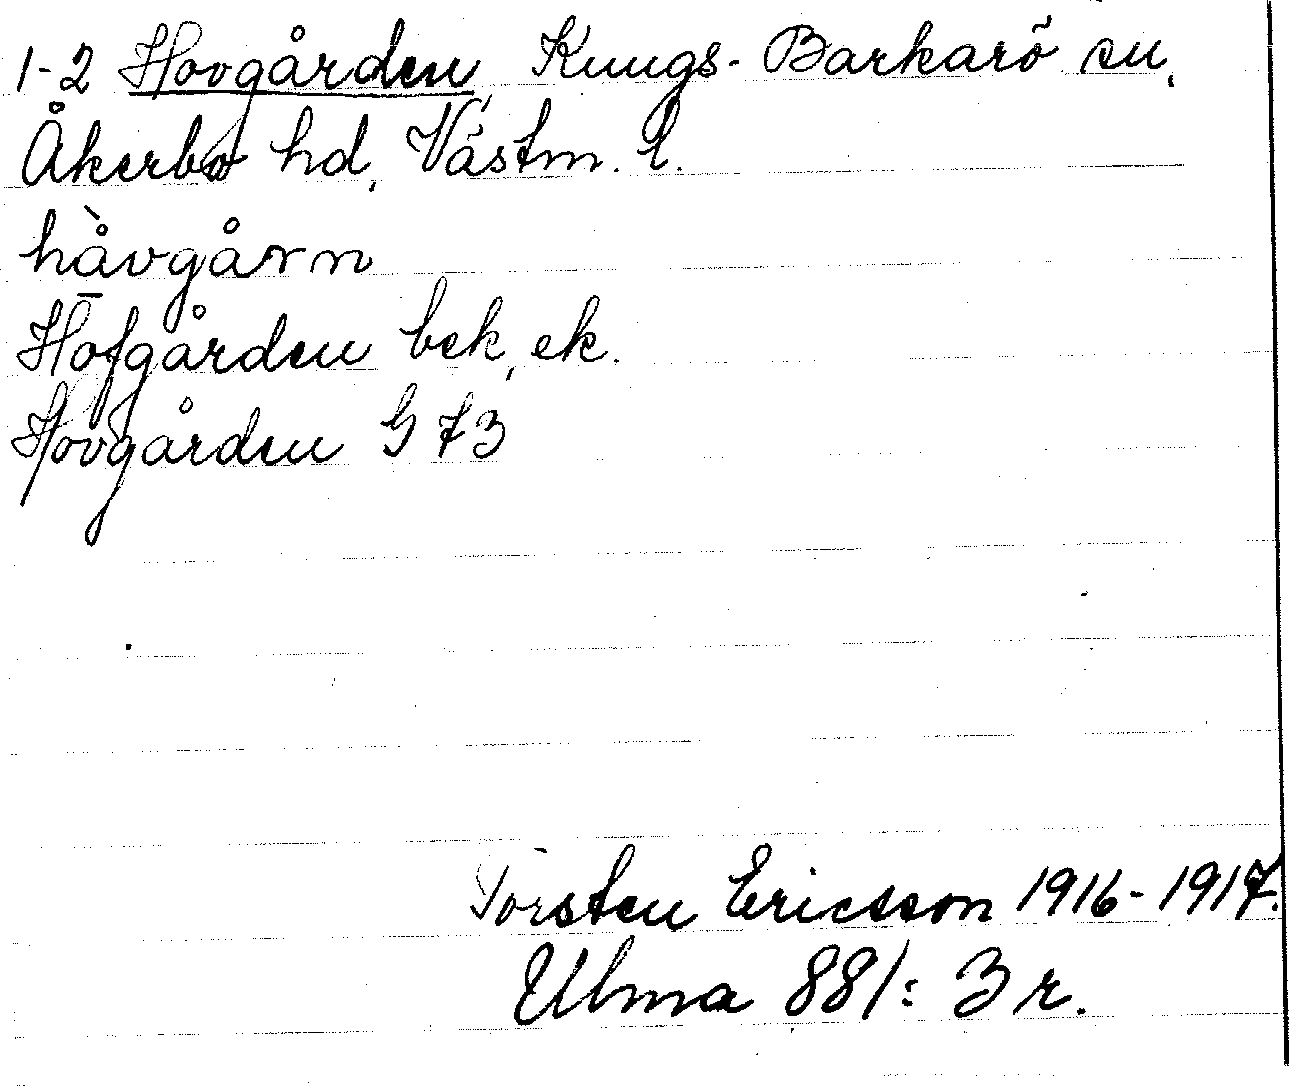 1-2 Hovgården, Kungs-Barkarö sn,
Åkerbo hd, Västm. l.
hå̀vgårn
Hofgården bek, ek.
Hovgården G 73
Torsten Ericsson 1916-1917.
Ulma 881: 3 r.